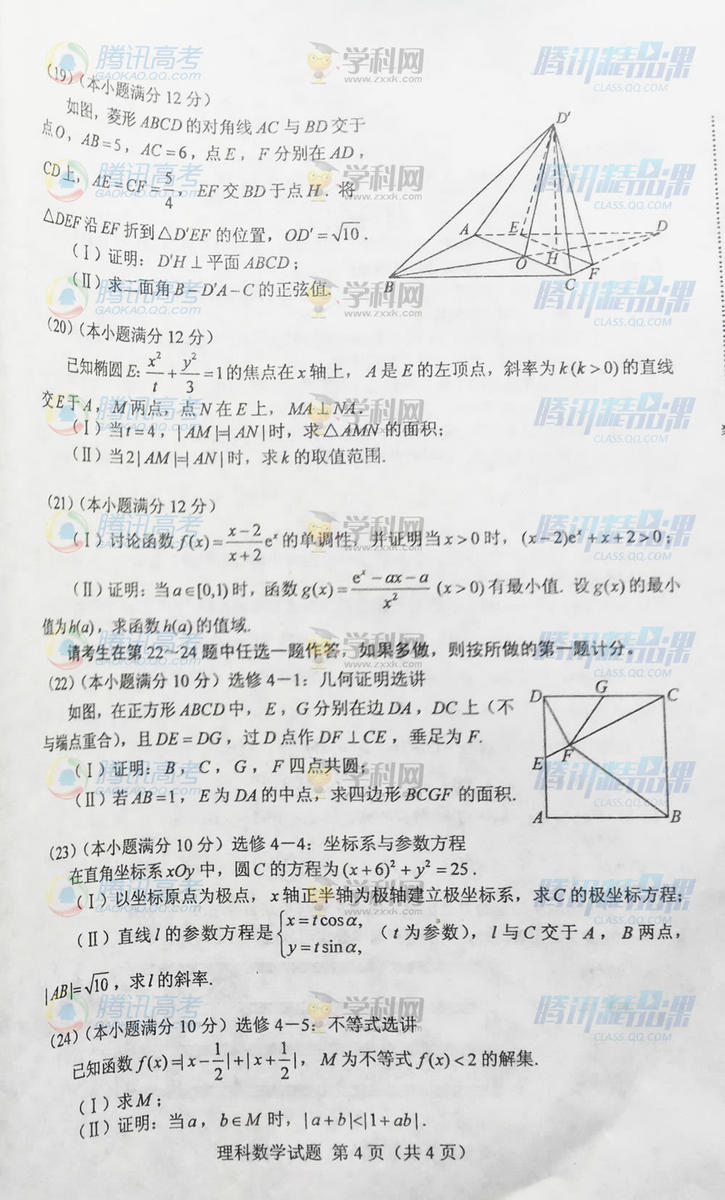 (19)(本小题满分12分)
如图,菱形ABCD的对角线AC与BD交于
点O,AB=5,AC=6,点E,F分别在AD,
CD上,AE=CF=5/4,EF交BD于点H.将
△DEF沿EF折到△D′EF的位置,OD′=√10.
(Ⅰ)证明:D′H⊥平面ABCD;
(Ⅱ)求二面角B-D′A-C的正弦值.
D′
A
E
D
O
H
F
B
C
(20)(本小题满分12分)
已知椭圆E:x²/t+y²/3=1的焦点在x轴上,A是E的左顶点,斜率为k(k>0)的直线
交E于A,M两点,点N在E上,MA⊥NA.
(Ⅰ)当t=4,|AM|=|AN|时,求△AMN的面积;
(Ⅱ)当2|AM|=|AN|时,求k的取值范围.
(21)(本小题满分12分)
(Ⅰ)讨论函数f(x)=(x-2)/(x+2)eˣ的单调性,并证明当x>0时,(x-2)eˣ+x+2>0;
(Ⅱ)证明:当a∈[0,1)时,函数g(x)=(eˣ-ax-a)/x²(x>0)有最小值.设g(x)的最小
值为h(a),求函数h(a)的值域.
请考生在第22~24题中任选一题作答,如果多做,则按所做的第一题计分。
(22)(本小题满分10分)选修4-1:几何证明选讲
如图,在正方形ABCD中,E,G分别在边DA,DC上(不
与端点重合),且DE=DG,过D点作DF⊥CE,垂足为F.
(Ⅰ)证明:B,C,G,F四点共圆;
(Ⅱ)若AB=1,E为DA的中点,求四边形BCGF的面积.
D
G
C
E
F
A
B
(23)(本小题满分10分)选修4-4:坐标系与参数方程
在直角坐标系xOy中,圆C的方程为(x+6)²+y²=25.
(Ⅰ)以坐标原点为极点,x轴正半轴为极轴建立极坐标系,求C的极坐标方程;
(Ⅱ)直线l的参数方程是{x=tcosα, y=tsinα, (t为参数),l与C交于A,B两点,
|AB|=√10,求l的斜率.
(24)(本小题满分10分)选修4-5:不等式选讲
已知函数f(x)=|x-1/2|+|x+1/2|,M为不等式f(x)<2的解集.
(Ⅰ)求M;
(Ⅱ)证明:当a,b∈M时,|a+b|<|1+ab|.
理科数学试题 第4页(共4页)
腾讯高考
GAOKAO.QQ.COM
学科网
www.zxxk.com
腾讯精品课
CLASS.QQ.COM